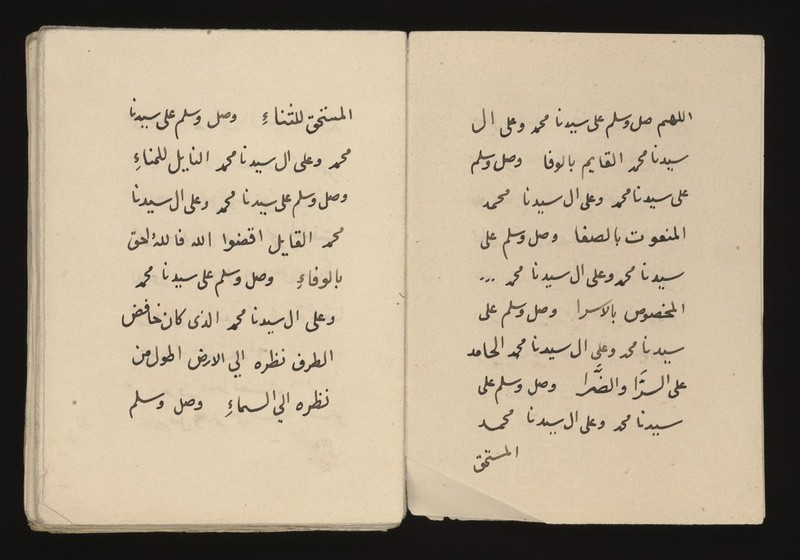 اللهم صل وسلم على سيدنا محمد وعلى ال
سيدنا محمد القايم بالوفا وصل وسلم
على سيدنا محمد وعلى ال سيدنا محمد
المنعوت بالصفا وصل وسلم على
سيدنا محمد وعلى ال سيدنا محمد ...
المخصوص بالاسرا وصل وسلم على
سيدنا محمد وعلى ال سيدنا محمد الحامد
على السَّرَّا والضَّرَّا وصل وسلم على
سيدنا محمد وعلى ال سيدنا محمد
المستحق
المستحق للثناءِ وصل وسلم على سيدنا
محمد وعلى ال سيدنا محمد النايل للهناءِ
وصل وسلم على سيدنا محمد وعلى ال سيدنا
محمد القايل اقضوا الله فالله احق
بالوفاءِ وصل وسلم على سيدنا محمد
وعلى ال سيدنا محمد الذى كان خافض
الطرف نظره الي الارض اطول من
نظره الي السماءِ وصل وسلم